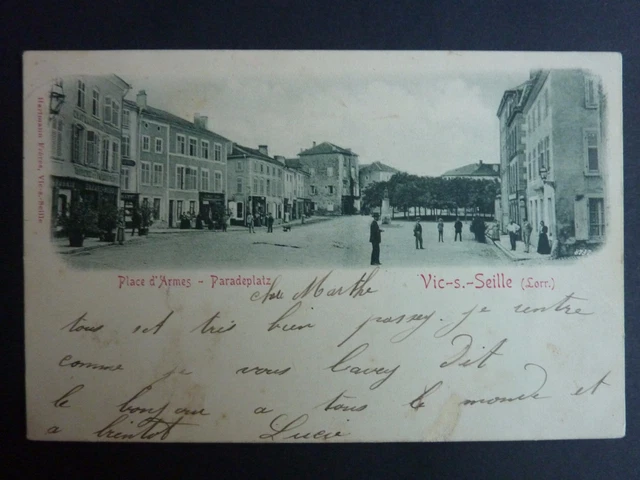 Hartmann Frères, Vic-s-Seille
Place d'Armes - Paradeplatz
Vic-s.-Seille (Lorr.)
Marthe
tous est très bien passey. je rentre
comme je vous lavey Dit
le bonjour a tous le monde et
a bientot Lucie